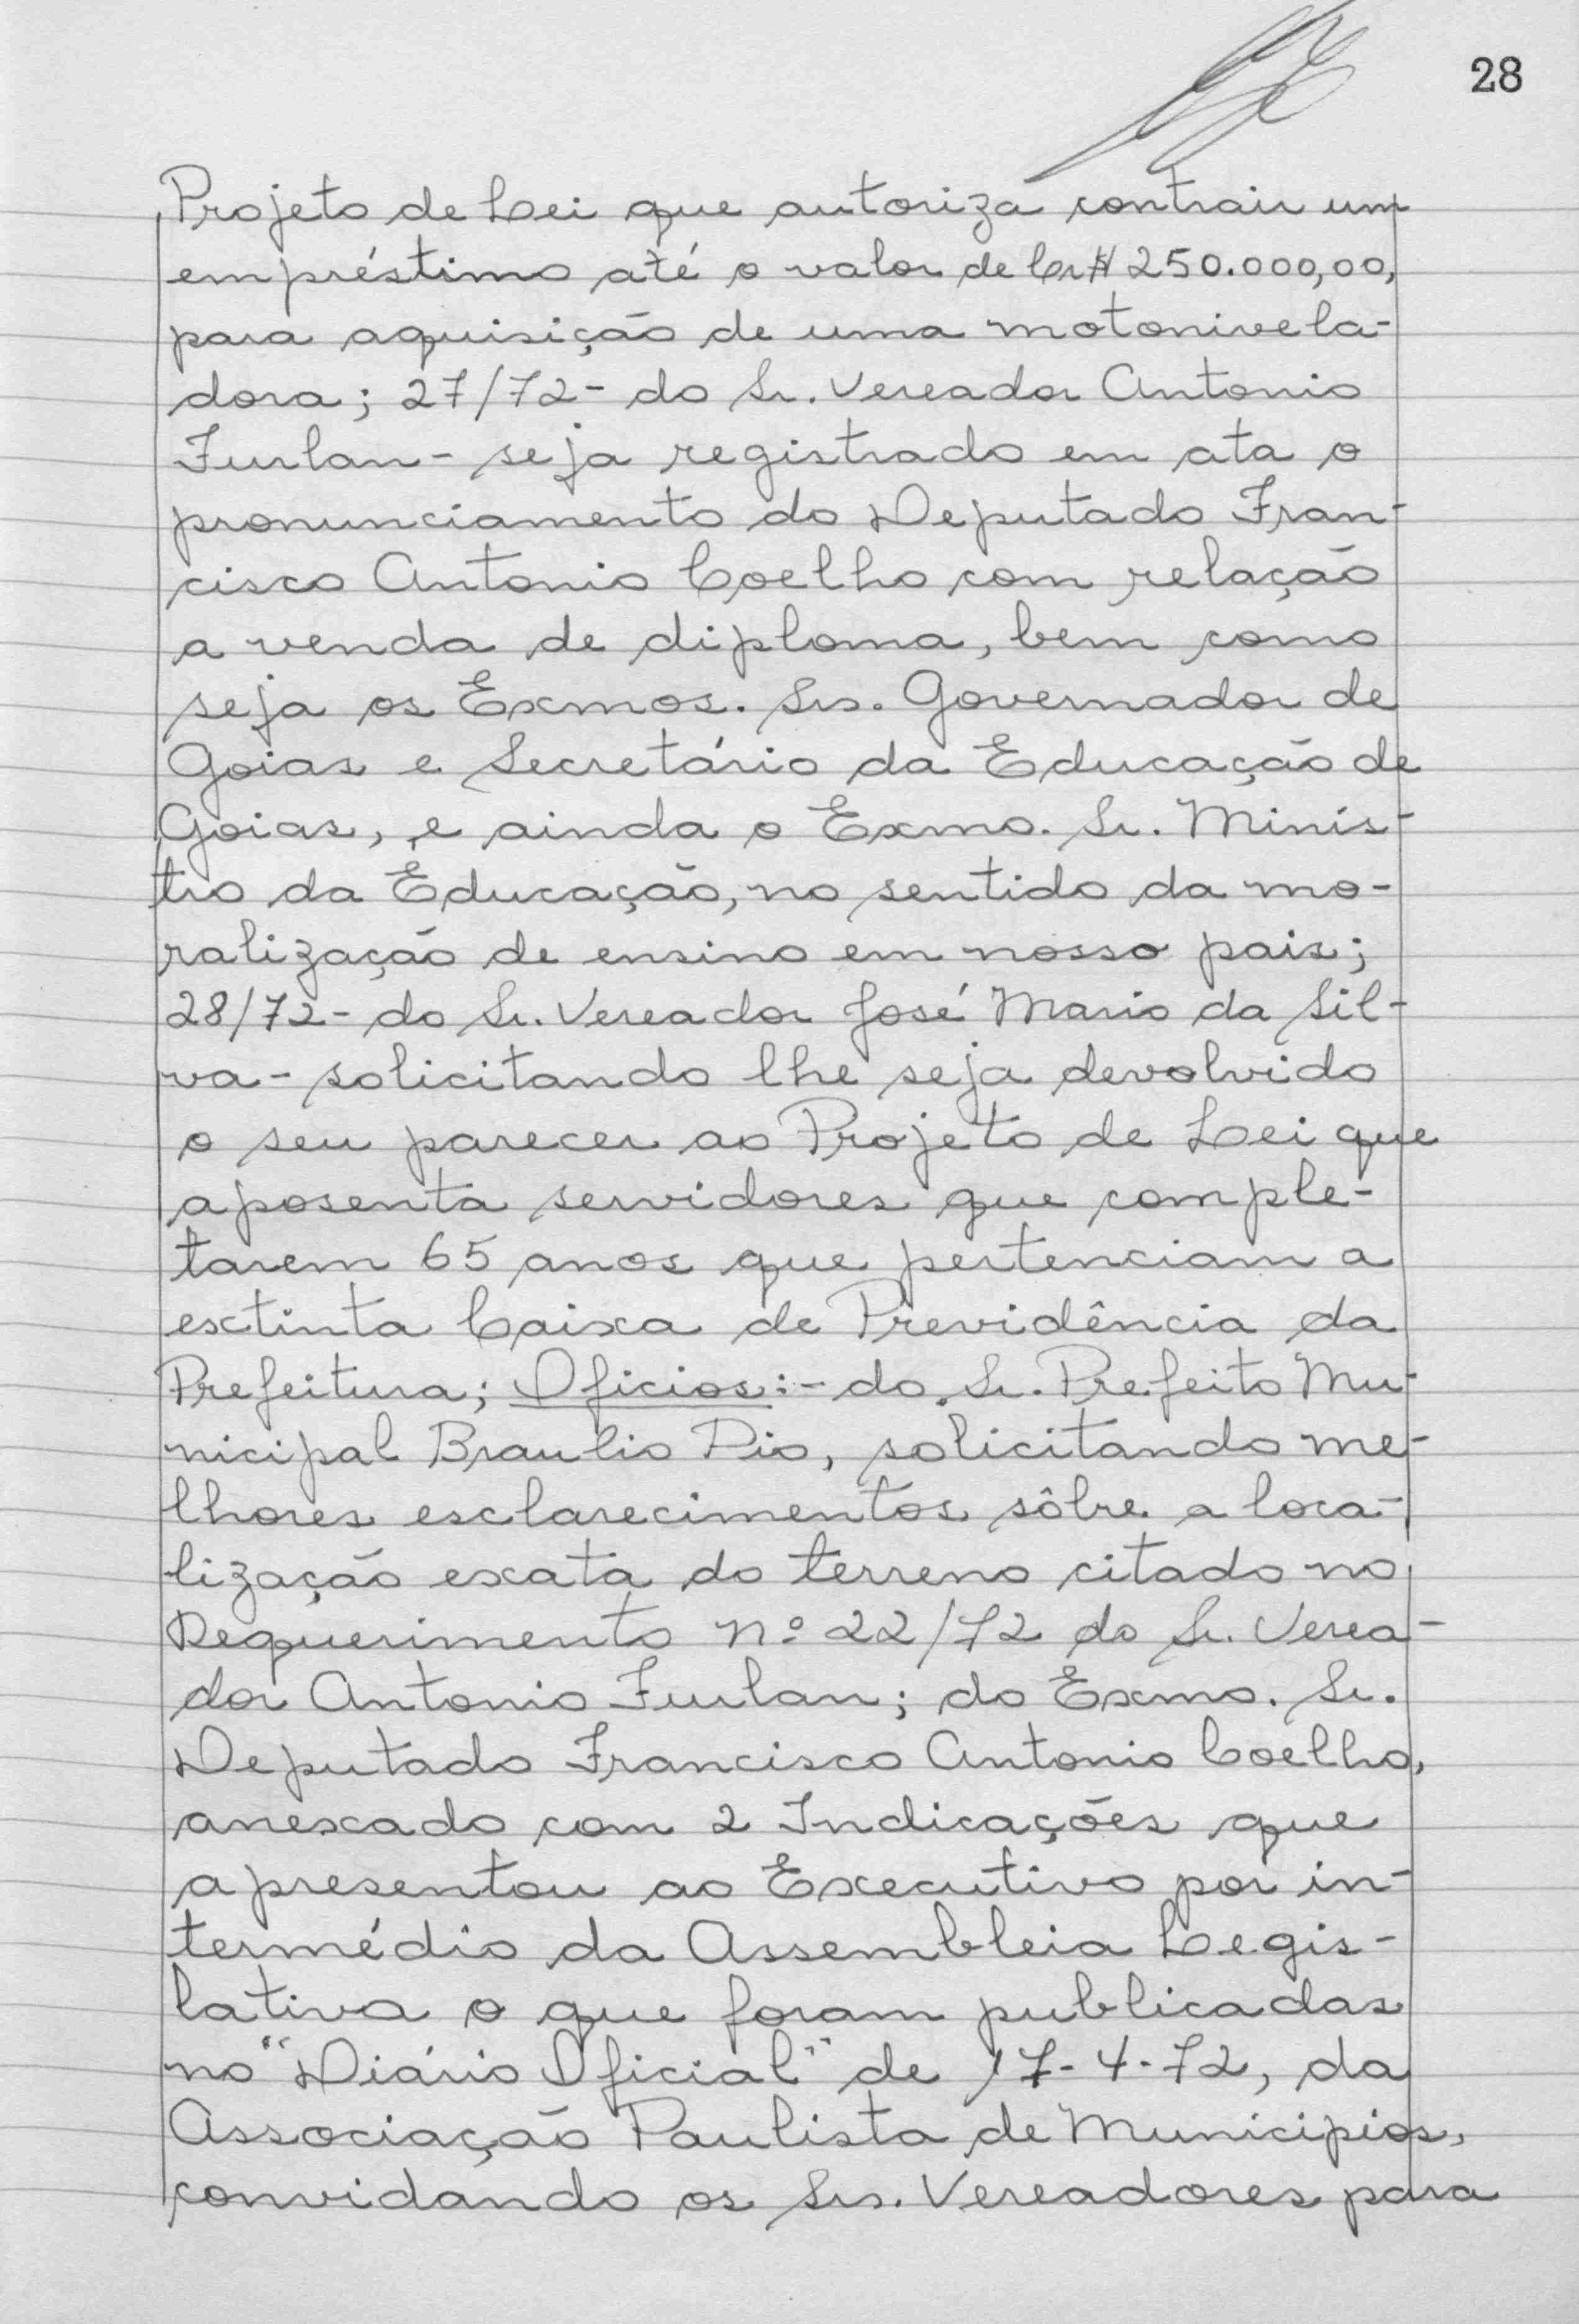 28
Projeto de Lei que autoriza contrair um
empréstimo até o valor de Cr$ 250.000,00,
para aquisição de uma motonivela-
dora; 27/72- do Sr. Vereador Antonio
Furlan- seja registrado em ata o
pronunciamento do Deputado Fran-
cisco Antonio Coelho com relação
a venda de diploma, bem como
seja os Exmos. Srs. Governador de
Goias e Secretário da Educação de
Goias, e ainda o Exmo. Sr. Minis-
tro da Educação, no sentido da mo-
ralização de ensino em nosso pais;
28/72- do Sr. Vereador José Mario da Sil-
va- solicitando lhe seja devolvido
o seu parecer ao Projeto de Lei que
aposenta servidores que comple-
tarem 65 anos que pertenciam a
extinta Caixa de Previdência da
Prefeitura; Oficios:- do Sr. Prefeito Mu-
nicipal Braulio Pio, solicitando me-
lhores esclarecimentos sôbre a loca-
lização exata do terreno citado no
Requerimento nº 22/72 do Sr. Verea-
dor Antonio Furlan; do Exmo. Sr.
Deputado Francisco Antonio Coelho,
anexado com 2 Indicações que
apresentou ao Executivo por in-
termédio da Assembleia Legis-
lativa o que foram publicadas
no "Diário Oficial" de 17-4-72, da
Associação Paulista de Municipios,
convidando os Srs. Vereadores para